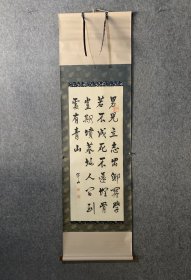 男兒立志出鄉関學
若不成死不還埋骨
豈期墳墓地人间到
處有青山